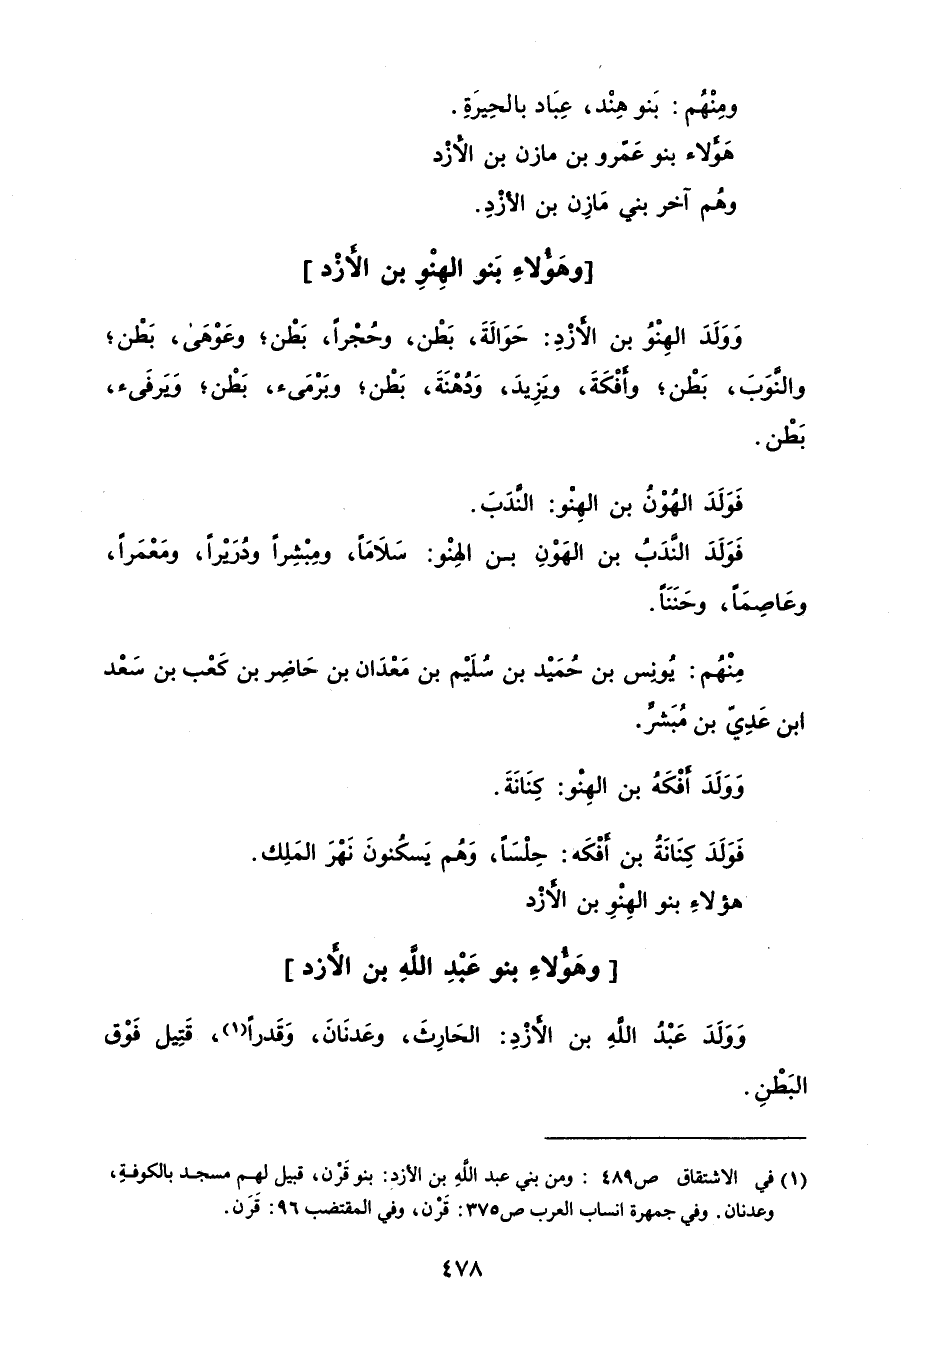 ومِنْهُم : بَنو هِنْد، عِبَاد بالحِيرَةِ.
هَؤُلاء بنو عَمّرو بن مازن بن الأَزْد
وهُم آخر بني مَازِن بن الأزْدِ.
[وهَؤُلاءِ بَنو الهِنْوِ بن الأَزْد ]
وَوَلَدَ الهِنْوُ بن الأَزْدِ: حَوَالَةَ، بَطْن، وحُجْراً، بَطْن؛ وعَوْهَىٰ، بَطْن؛
والنَّوَبَ، بَطْن؛ وأَفْكَةَ، ويَزِيدَ، وَدُهْنَةَ، بَطْن؛ وبَرْمَىء، بَطْن؛ وَيَرفَىء،
بَطْن.
فَوَلَدَ الهُوْنُ بن الهِنْو: النَّدَبَ.
فَوَلَدَ النَّدَبُ بن الهَوْنِ بـن الهِنْو: سَلَامَاً، ومِبْشِراً ودُرَيْراً، ومَعْمَراً،
وعَاصِمَاً، وحَنَنَاً.
مِنْهُم: يُونِس بن حُمَيْد بن سُلَيْم بن مَعْدَان بن حَاضِر بن كَعْب بن سَعْد
ابن عَدِيّ بن مُبَشرٌ.
وَوَلَدَ أَفْكَهُ بن الهِنْو: كِنَانَةَ.
فَوَلَدَ كِنَانَةُ بن أَفْكَه: حِلْسَاً، وَهُم يَسكُنونَ نَهْرَ المَلِك.
هؤلاءِ بنو الهِنْوِ بن الأَزْد
[ وهَؤُلاءِ بنو عَبْدِ اللَّهِ بن الأَزد ]
وَوَلَدَ عَبْدُ اللَّهِ بن الأَزْدِ: الحَارِثَ، وعَدنَانَ، وَقَدراً(١)، قَتِيل فَوْق
البَطْنِ.
(١) في الاشتقاق ص٤٨٩ : ومن بني عبد اللَّهِ بن الأزد: بنو قَرْن، قبيل لهـم مسجـد بالكوفـةِ،
وعدنان. وفي جمهرة انساب العرب ص٣٧٥: قَرْن، وفي المقتضب ٩٦: قَرَن.
٤٧٨